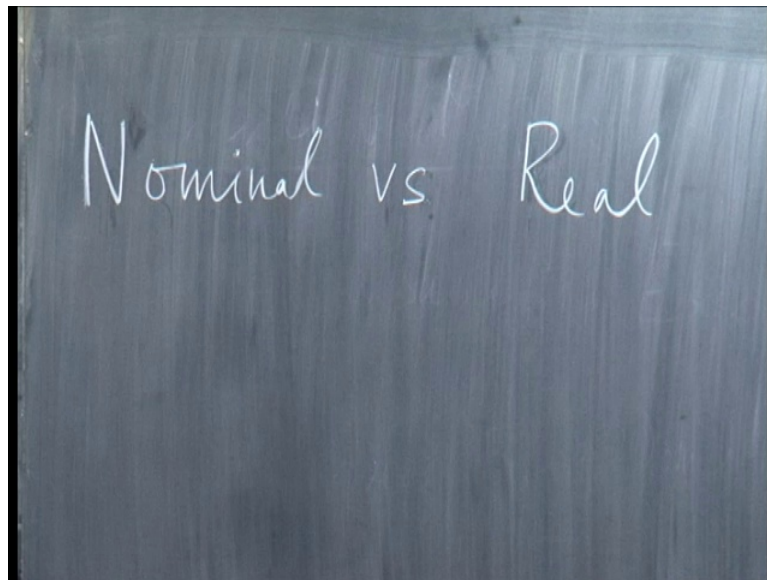 Nominal vs Real